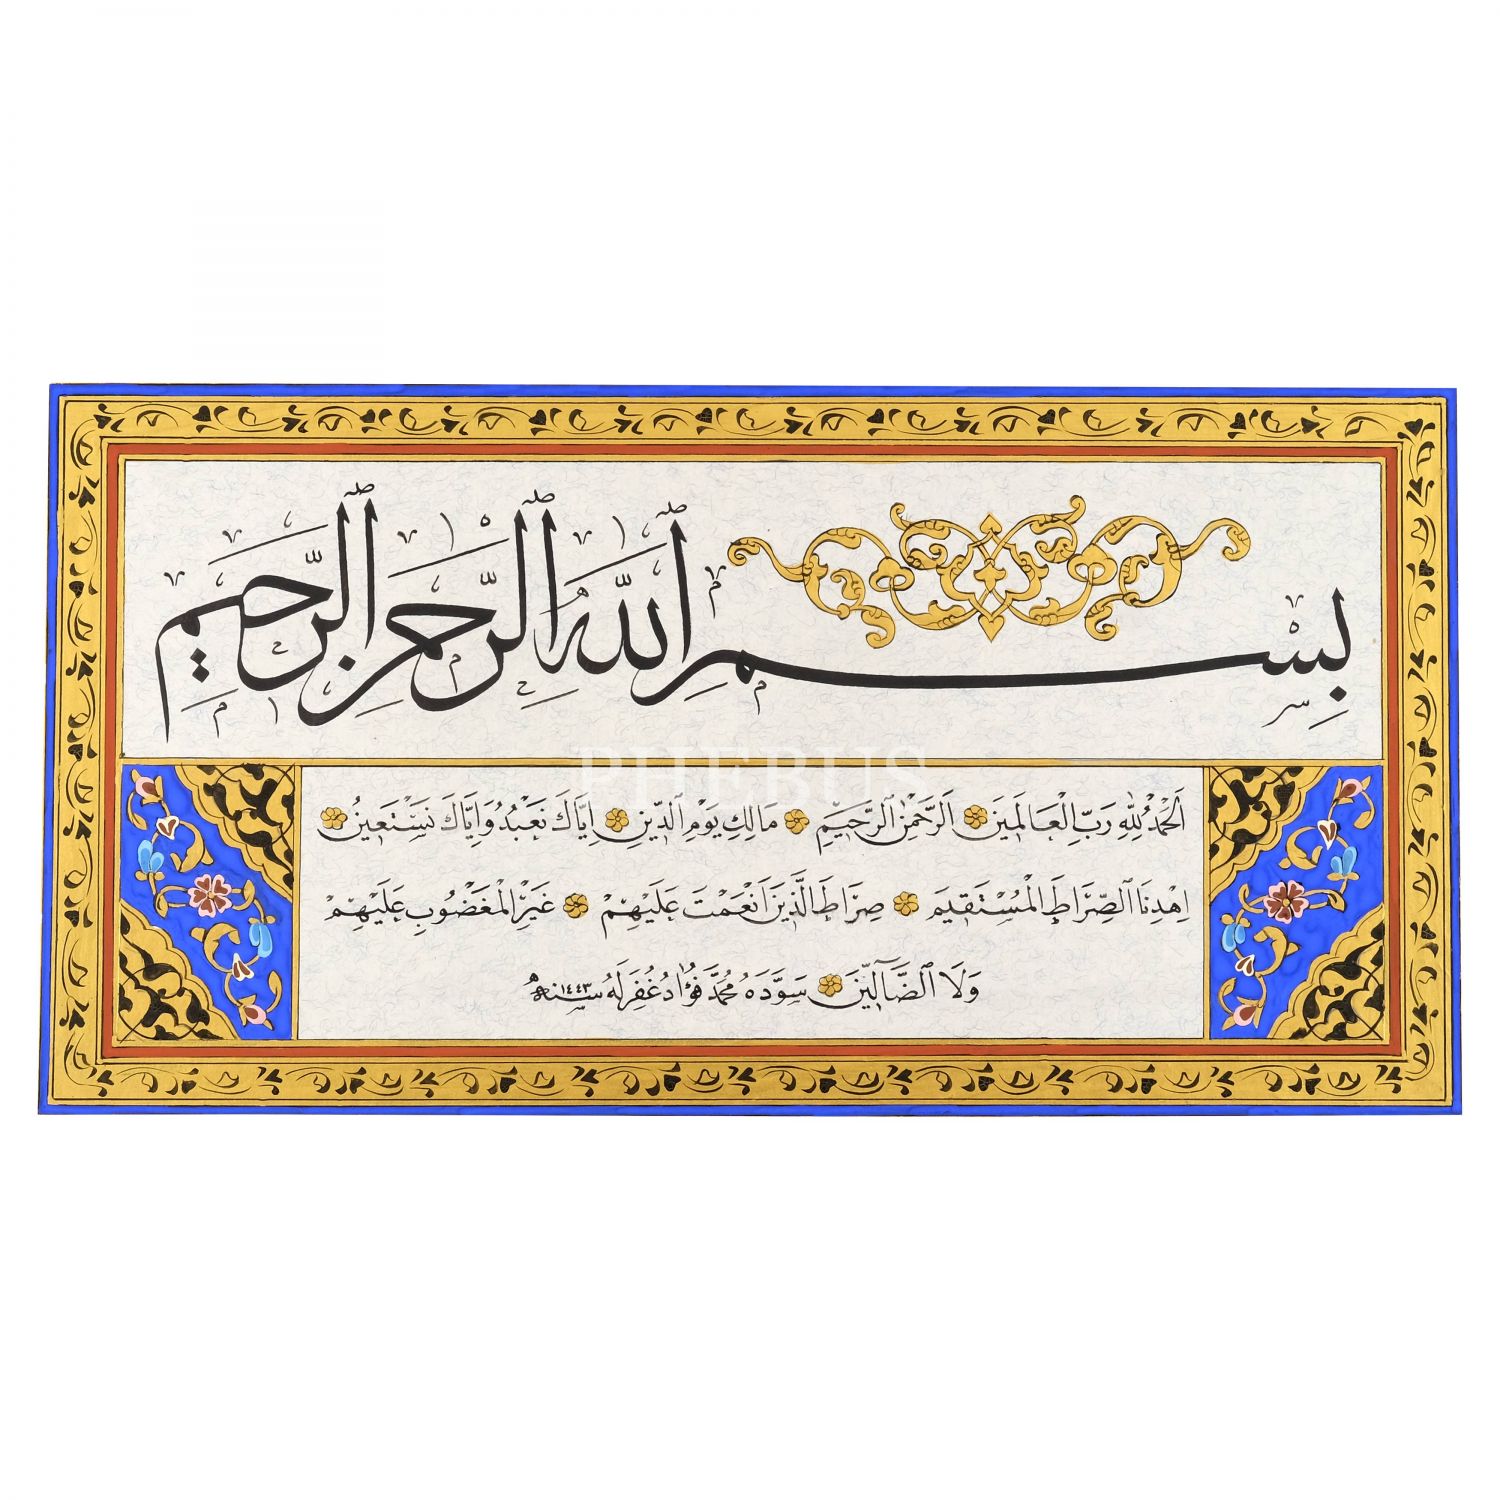 بِسْمِ ٱللّٰهِ ٱلرَّحْمٰنِ ٱلرَّحِيمِ
PHEBUS
اَلْحَمْدُ لِلّٰهِ رَبِّ الْعَالَمِينَ اَلرَّحْمٰنِ ٱلرَّحِيمِ مَالِكِ يَوْمِ ٱلدِّينِ اِيَّاكَ نَعْبُدُ وَاِيَّاكَ نَسْتَعِينُ
اِهْدِنَا ٱلصِّرَاطَ الْمُسْتَقِيمَ صِرَاطَ الَّذِينَ اَنْعَمْتَ عَلَيْهِمْ غَيْرِ الْمَغْضُوبِ عَلَيْهِمْ
وَلَا ٱلضَّآلِّينَ سَوَّدَهُ مُحَمَّد فُؤَاد غُفِرَ لَهُ سنه ١٤٤٣